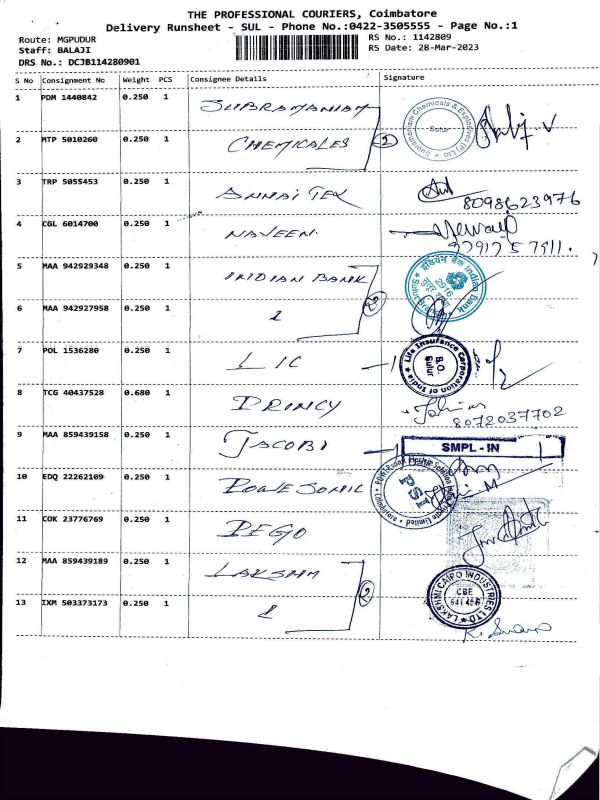 THE PROFESSIONAL COURIERS, Coimbatore
Delivery Runsheet - SUL - Phone No.:0422-3505555 - Page No.:1
Route: MGPUDUR RS No.: 1142809
Staff: BALAJI RS Date: 28-Mar-2023
DRS No.: DCJB114280901
S No Consignment No Weight PCS Consignee Details Signature
1 PDM 1440842 0.250 1 SUBRAMANIAM
2 MTP 5010260 0.250 1 CHEMICALES 2
Subramaniam Chemicals & Explosives (P) Ltd
Sulur
3 TRP 5055453 0.250 1 ANNAI TEX
8098623976
4 CGL 6014700 0.250 1 NAVEEN
9791757911.
5 MAA 942929348 0.250 1 INDIAN BANK
6 MAA 942927958 0.250 1 2
Indian Bank
2916
7 POL 1536280 0.250 1 LIC
Life Insurance Corporation of India
B.O.
Sulur
8 TCG 40437528 0.680 1 PRINCY
8072037702
9 MAA 859439158 0.250 1 JACOBI
SMPL - IN
10 EDQ 22262109 0.250 1
PSI
11 COK 23776769 0.250 1 PEGO
12 MAA 859439189 0.250 1 LAKSHMI
13 IXM 503373173 0.250 1 2
LAKSHMI CAIPO INDUSTRIES LTD
CBE
641 406